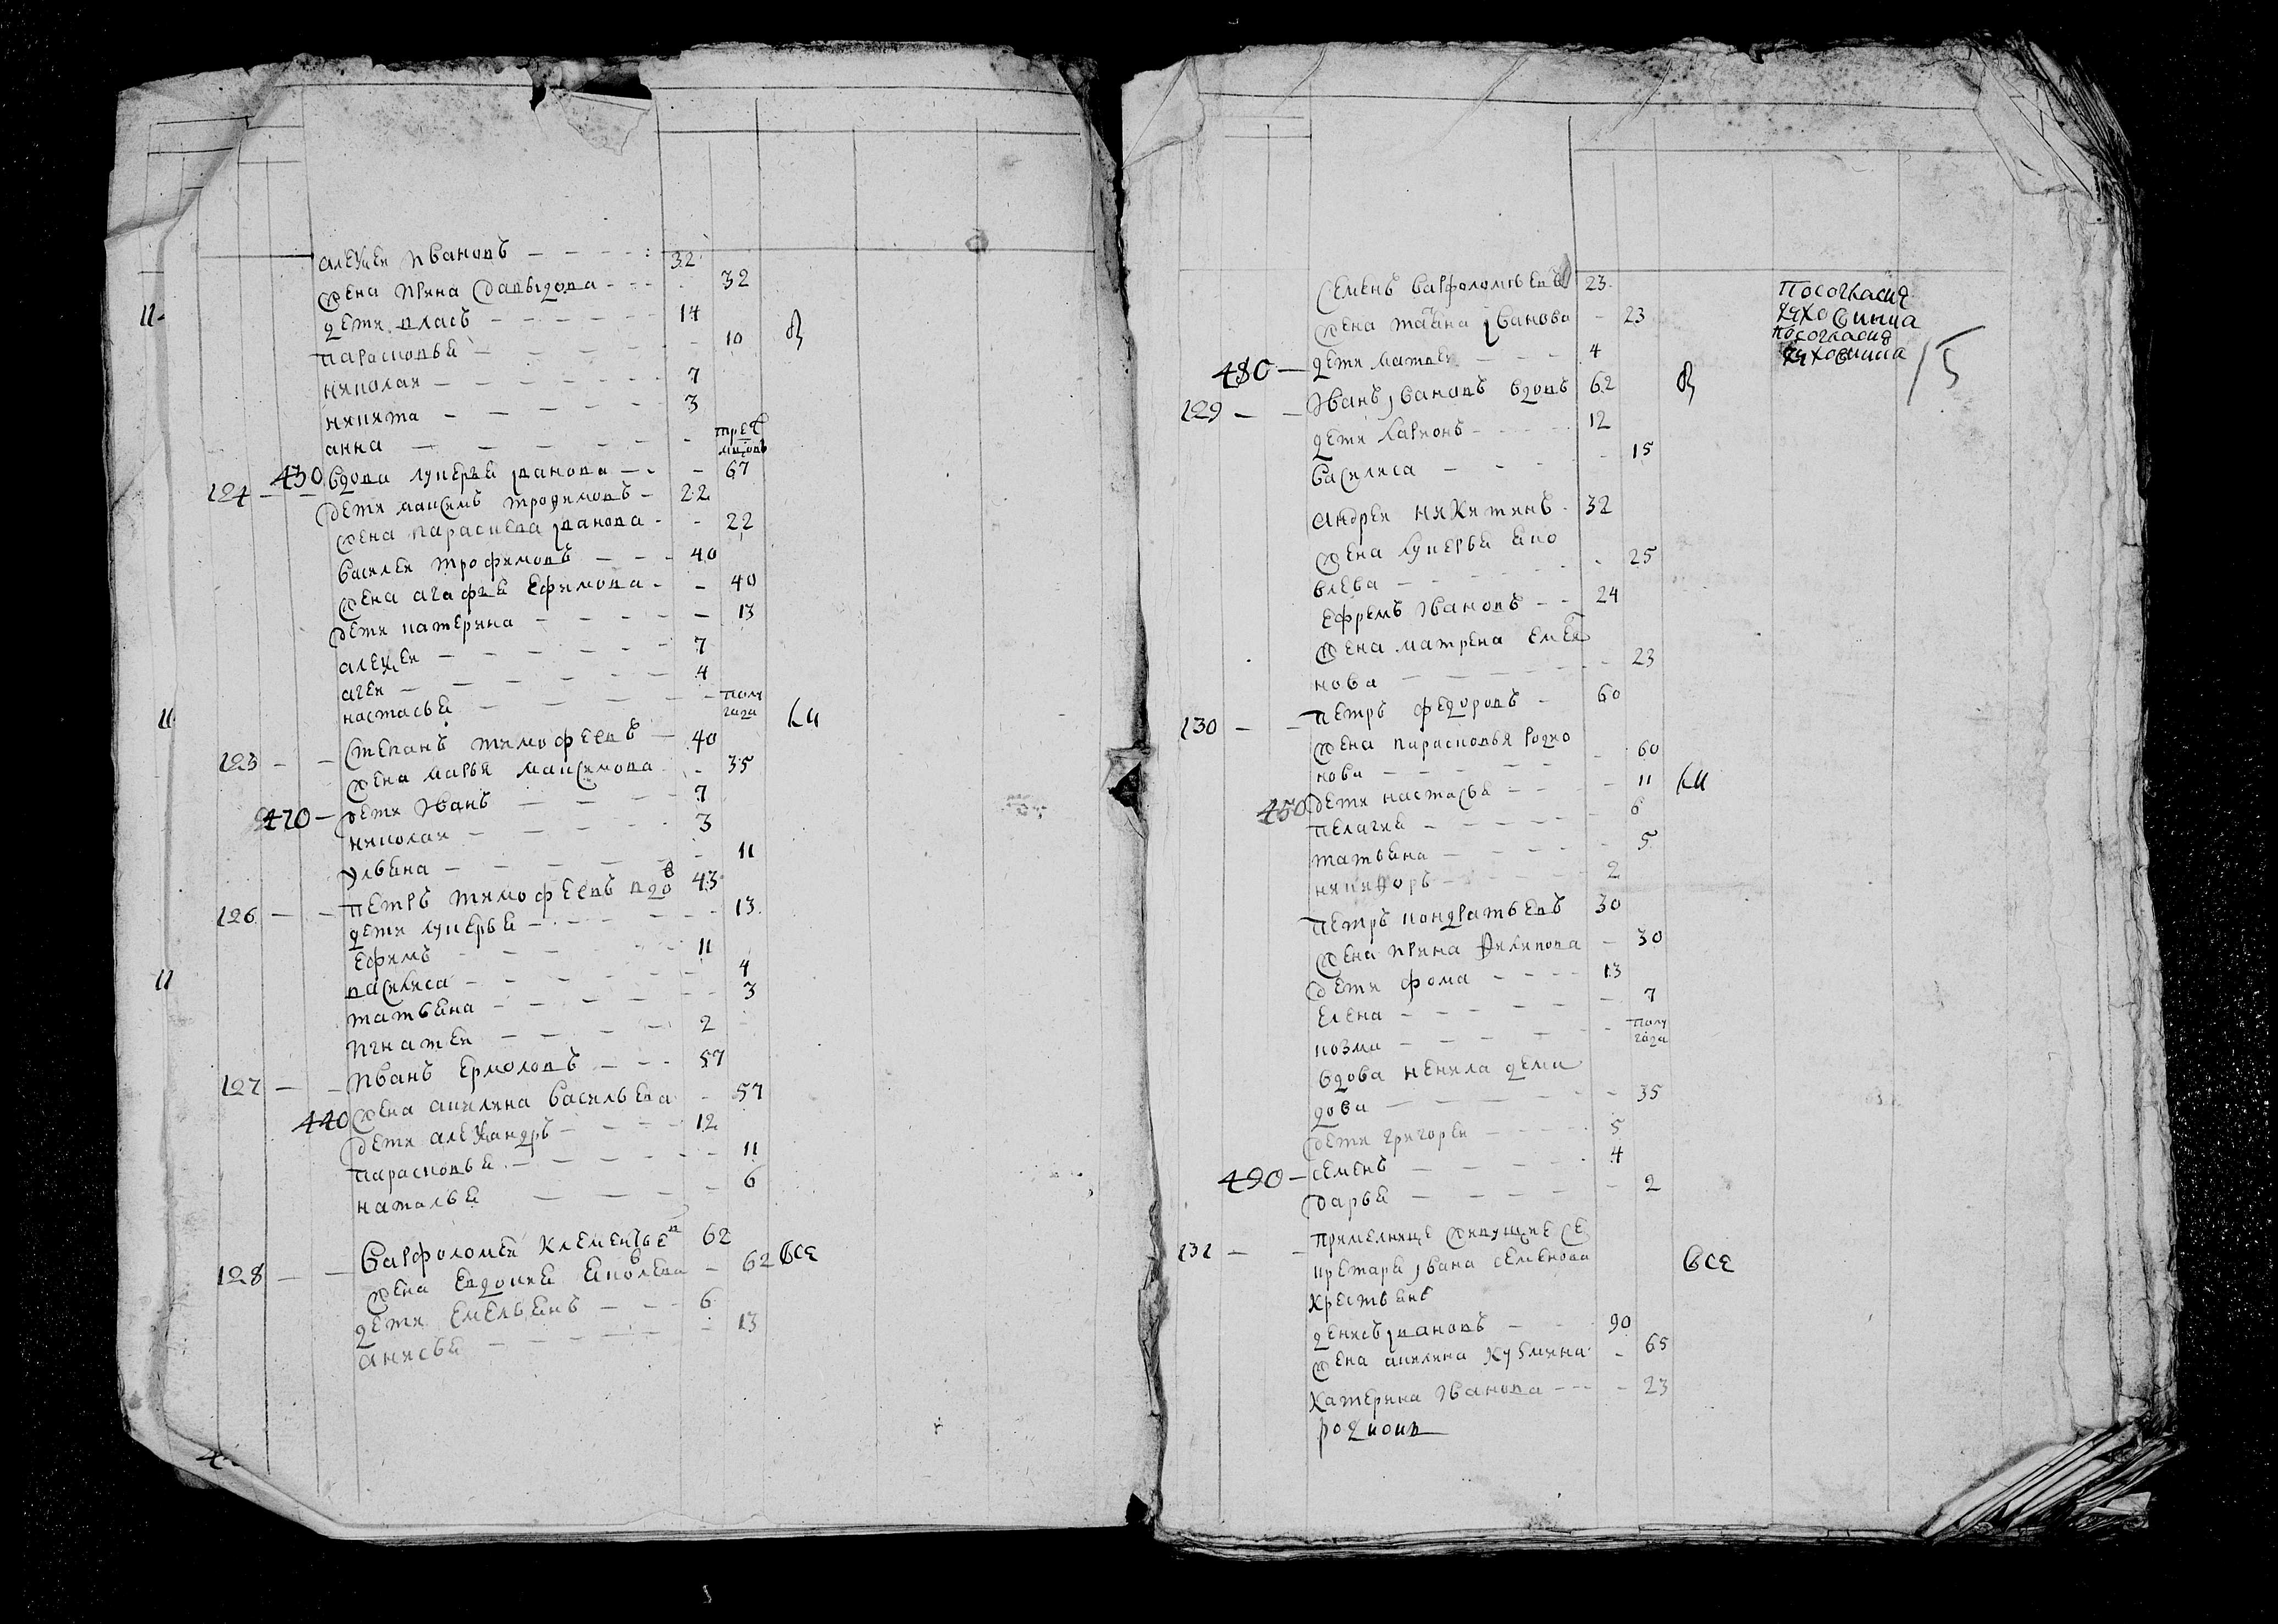 алеѯеи ивановъ 32
жена ирина давыдова 32
11 дети власъ 14
парасковья 10
николаи 7
никита 3
анна трех мцовъ
124 430 вдова лукерья иванова 67
дети максимъ трофимовъ 22
жена параскева иванова 22
василеи трофимовъ 40
жена агафья ефимова 40
дети катерина 13
алеѯеи 7
агеи 4
настасья полу года
123 степанъ тимофеевъ 40
жена марья максимова 35
470 дети иванъ 7
николаи 3
ульяна 11
126 петръ тимофеевъ вдовъ 43
дети лукерья 13
ефимъ 11
11 василиса 4
татьяна 3
игнатеи 2
127 иванъ ермоловъ 57
440 жена акилина васильева 57
дети алеѯандръ 12
парасковья 11
наталья 6
128 варфоломеи клементьев 62
жена евдокия яковлева 62 все
дети емельянъ 6
анисья 13
семенъ варфоломѣевъ 23
жена татиана иванова 23
480 дети матвеи 4
129 иванъ ивановъ вдовъ 62
дети ларионъ 12
василиса 15
андреи никитинъ 32
жена лукерья яко
влева 25
ефремъ ивановъ 24
жена матрена емел
нова 23
130 петръ федоровъ 60
жена парасковья родио
нова 60
450 дети настасья 11
пелагия 6
татьяна 5
никифоръ 2
петръ кондратьевъ 30
жена ирина филипова 30
дети фома 13
елена 7
козма полу года
вдова ненила деми
дова 35
дети григореи 5
490 семенъ 4
дарья 2
131 примелнице живущие се
кретаря ивана семенова все
крестьяне
денисъ ивановъ 90
жена акилина кузмина 65
катерина иванова 23
родион